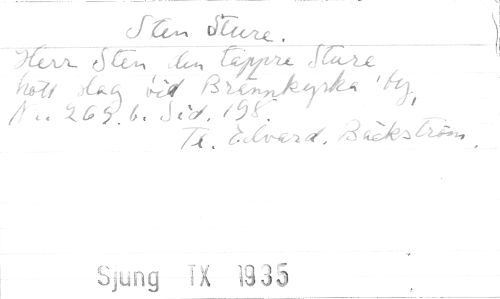 Sten Sture.
Herr Sten den tappre Sture
höll slag vid Brännkyrka by,
No. 269. b. Sid. 198.
Te. Edvard. Bäckström.
Sjung IX 1935